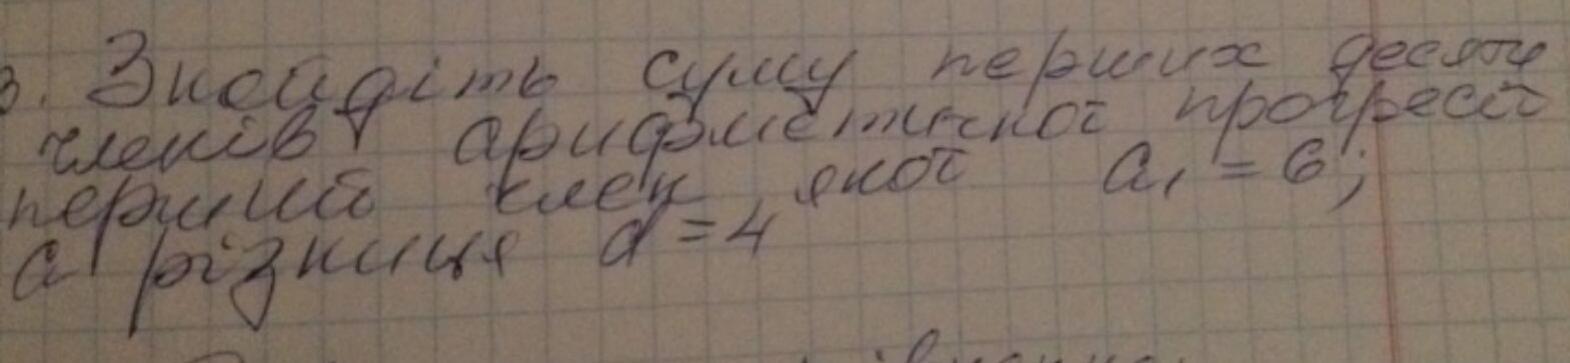 3. Знайдіть суму перших десяти
членів арифметичної прогресії
перший член якої a₁ = 6;
а різниця d = 4